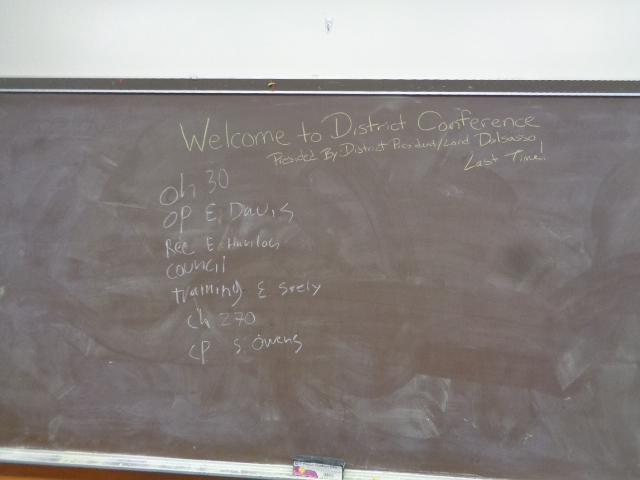 Welcome to District Conference
Presided By District President/Land Dalsasso
Last Time!
oh 30
OP E. Davis
Rec E
council
training E Seely
ch 270
cp S. Owens